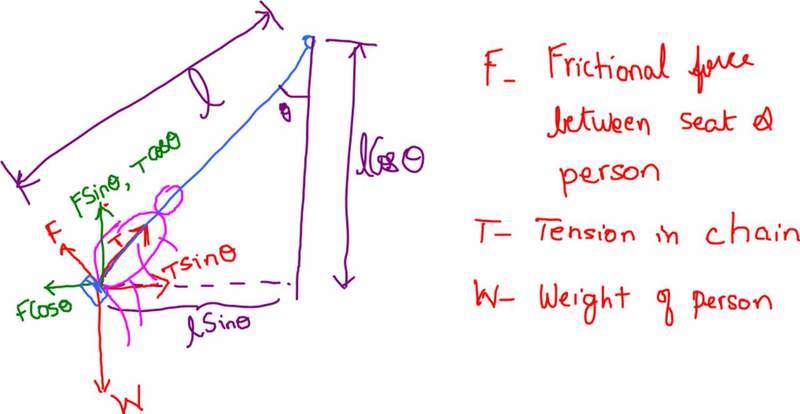 l
θ
lCosθ
FSinθ, TCosθ
F
T
TSinθ
FCosθ
lSinθ
W
F- Frictional force
between seat &
person
T- Tension in chain
W- Weight of person